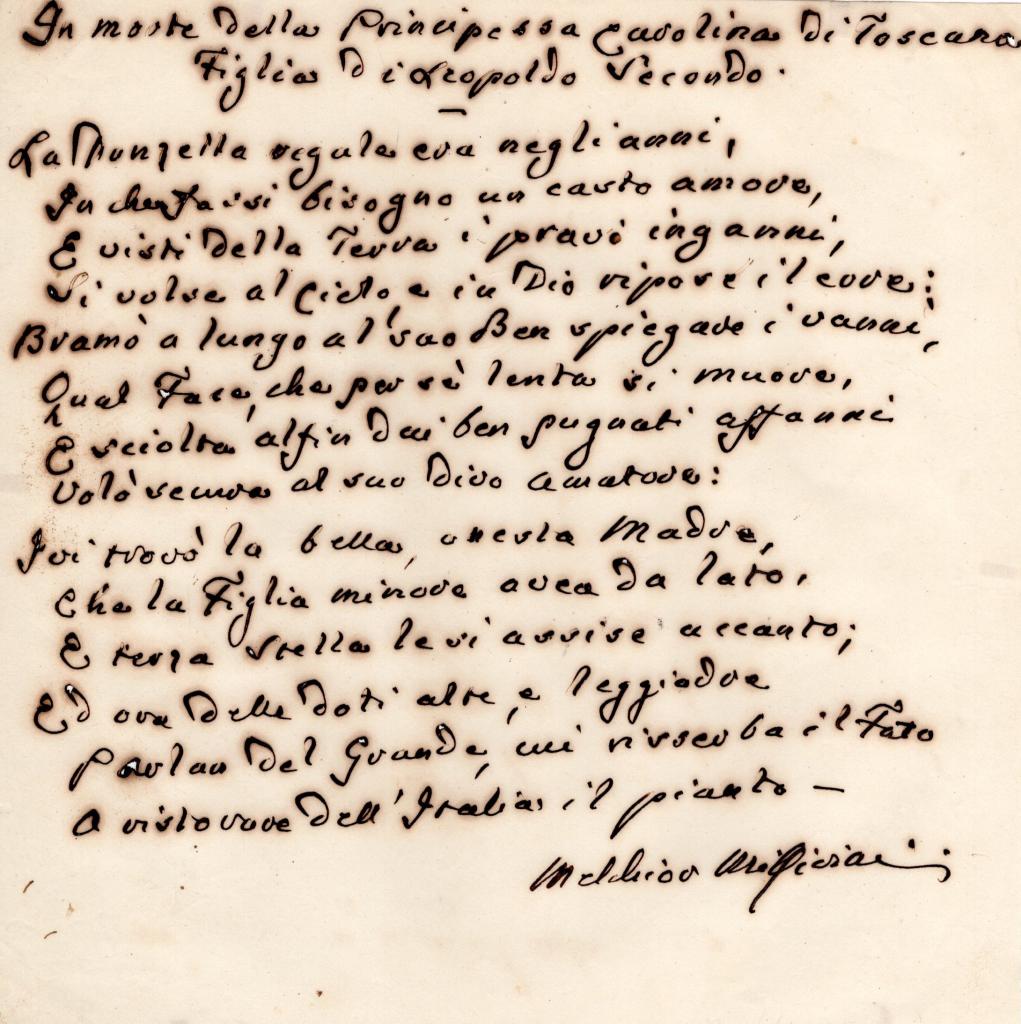 In morte della Principessa Carolina di Toscana
Figlia di Leopoldo Secondo.
La Donzella regale era negli anni,
In che fassi bisogno un casto amore,
E visti della Terra i pravi inganni,
Si volse al Cielo, e in Dio ripose il core:
Bramò a lungo al suo Ben spiegare i vanni,
Qual Face, che per sè lenta si muore,
E sciolta alfin dai ben pugnati affanni
Volò secura al suo Divo amatore:
Ivi trovò la bella, onesta Madre,
Che la Figlia minore avea da lato,
E terza Stella le si assise accanto;
Ed ora delle doti alte, e leggiadre
Parlan del Grande, cui risserba il Fato
A ristorare dell' Italia il pianto —
Melchior